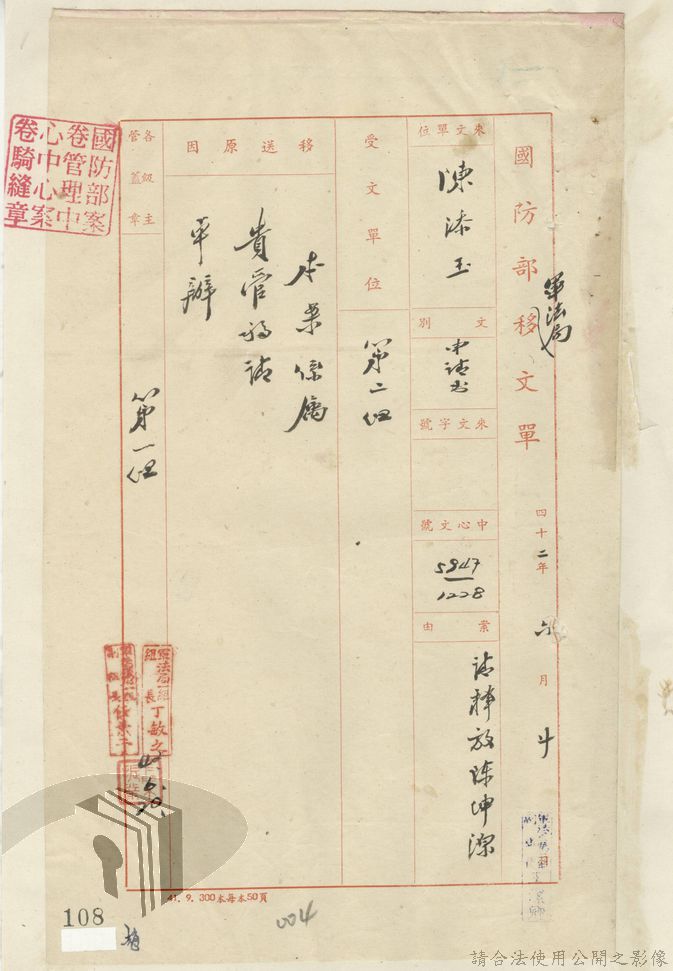 國防部移文單
軍法局
四十二年六月廿
來文單位
陳添玉
文別
申請書
來文字號
中心文號
5947
1228
案由
請釋放陳坤潔
受文單位
第二組
移送原因
本案係屬
貴管移請
卓辦
各級主管蓋章
第一組
國防部案
卷管理中
心中心案
卷騎縫章
軍法局一組
組長丁敏之
42.6.20.
41.9.300本每本50頁
004
108
請合法使用公開之影像